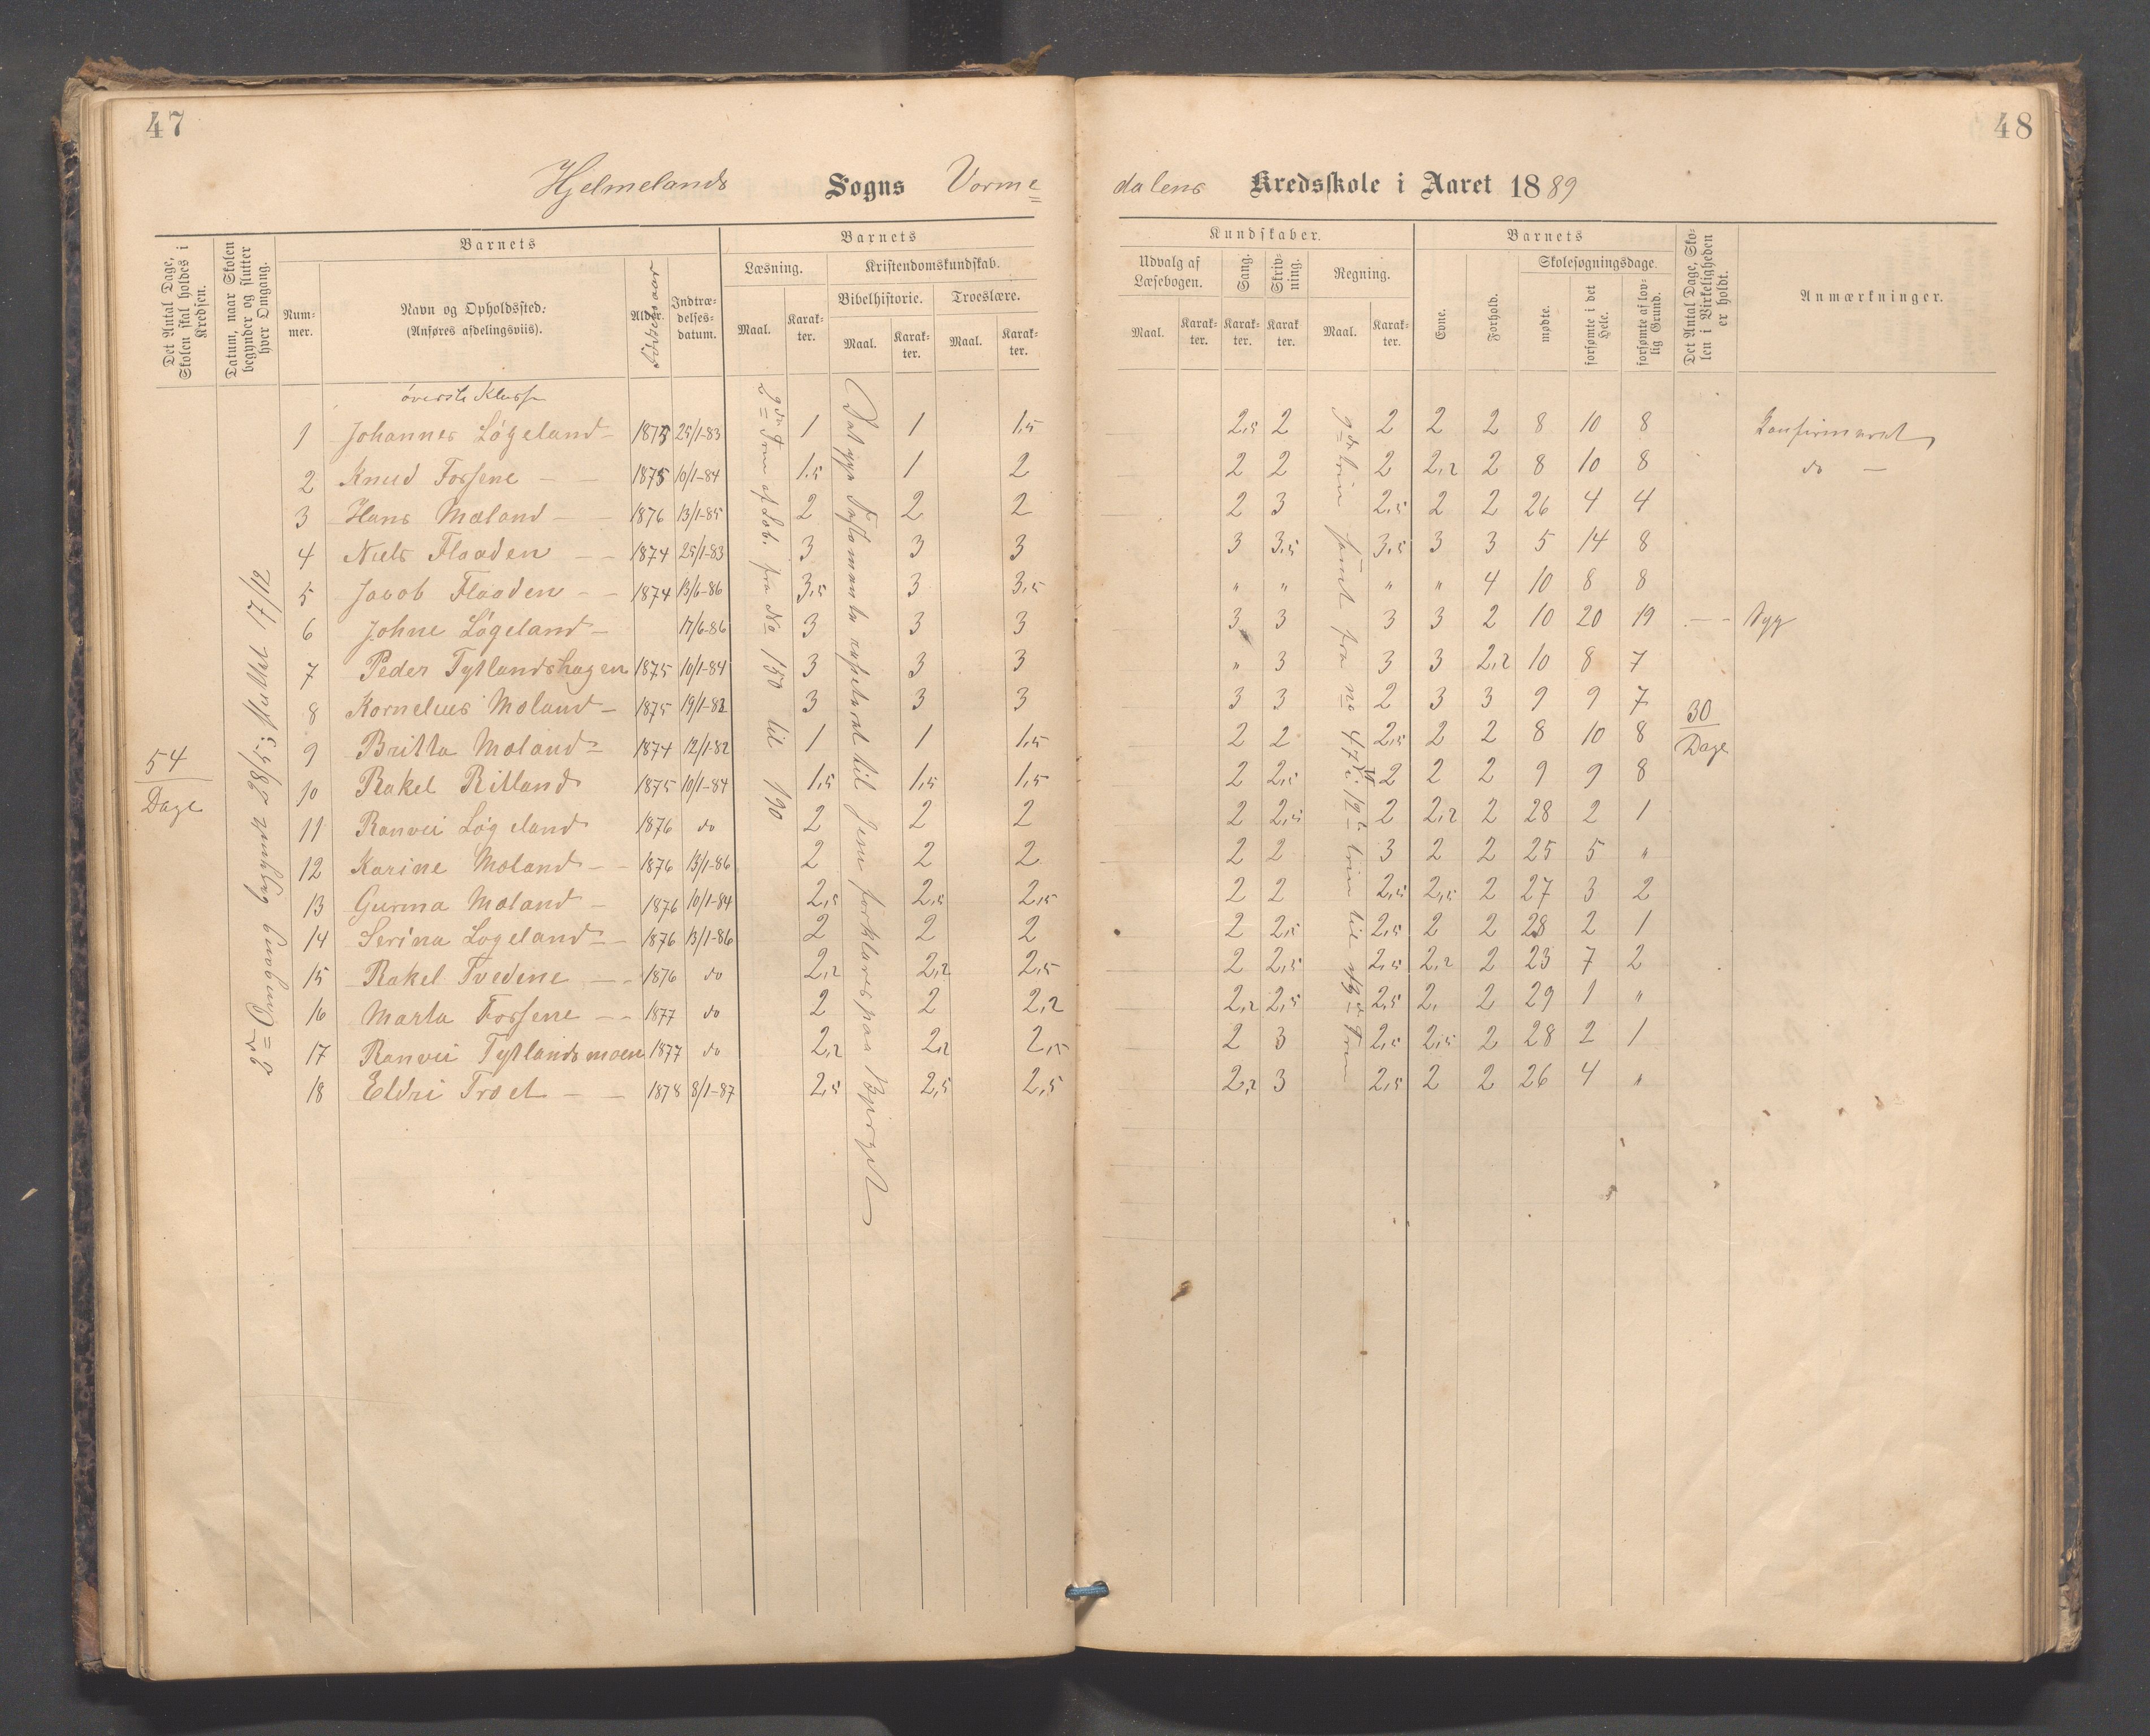 47
48
Hjelmelands Sogns Vorme=
dalens Kredsskole i Aaret 1889
Det Antal Dage, Skolen skal holdes i Kredsen.
Datum, naar Skolen begynder og slutter hver Omgang.
Barnets
Nummer.
Navn og Opholdssted.
(Anføres afdelingsviis).
Alder.
Fødselsaar
Indtrædelsesdatum.
Barnets
Læsning.
Maal.
Karakter.
Kristendomskundskab.
Bibelhistorie.
Maal.
Karakter.
Troeslære.
Maal.
Karakter.
Kundskaber.
Udvalg af Læsebogen.
Maal.
Karakter.
Sang.
Karakter.
Skrivning.
Karakter.
Regning.
Maal.
Karakter.
Barnets
Evne.
Forhold.
Skolesøgningsdage.
mødte.
forsømte i det Hele.
forsømte af lovlig Grund.
Det Antal Dage, Skolen i Virkeligheden er holdt.
Anmærkninger.
54
Dage
2den Omgang begynt 28/5; sluttet 17/12
øverste Klasse
1 Johannes Løgeland 1875 25/1-83 1 1 1,5 2,5 2 2 2 2 8 10 8 Konfirmeret
2 Knud Fossene 1875 10/1-84 1,5 1 2 2 2 2 2,2 2 8 10 8 do
3 Hans Mæland 1876 13/1-85 2 2 2 2 3 2,5 2 2 26 4 4
4 Niels Flaaden 1874 25/1-83 3 3 3 3 3,5 3,5 3 3 5 14 8
5 Jacob Flaaden 1874 13/6-86 3,5 3 3,5 " " " " 4 10 8 8
6 Johne Løgeland 17/6-86 3 3 3 3 3 3 3 2 10 20 19 syg
7 Peder Tytlandshagen 1875 10/1-84 3 3 3 " 3 3 3 2,2 10 8 7
8 Kornelius Mæland 1875 19/1-82 3 3 3 3 3 2 3 3 9 9 7
9 Britta Mæland 1874 12/1-82 1 1 1,5 2 2 2,5 2 2 8 10 8
10 Rakel Ritland 1875 10/1-84 1,5 1,5 1,5 2 2,5 2 2 2 9 9 8
11 Ranvei Løgeland 1876 do 2 2 2 2 2,5 2 2,2 2 28 2 1
12 Karine Mæland 1876 13/1-86 2 2 2 2 2 3 2 2 25 5 "
13 Gurina Mæland 1876 10/1-84 2,5 2,5 2,5 2 2 2,5 2,5 2 27 3 2
14 Serina Løgeland 1876 13/1-86 2 2 2 2 2,5 2,5 2 2 28 2 1
15 Rakel Tvedene 1876 do 2,2 2,2 2,5 2 2,5 2,5 2,2 2 23 7 2
16 Marta Fossene 1877 do 2 2 2,2 2,2 2,5 2,5 2, 2 29 1 "
17 Ranvei Tytlandsmoen 1877 do 2,2 2,2 2,5 2 3 2,5 2,5 2 28 2 1
18 Eldri Troet 1878 8/1-87 2,5 2,5 2,5 2,2 3 2,5 2 2 26 4 "
30
Dage
2det Trin af Læb. fra No 150 til 190
Det nye Testamente til Jesu forklares paa Bjerget
fra no 47 i 1ste trin til